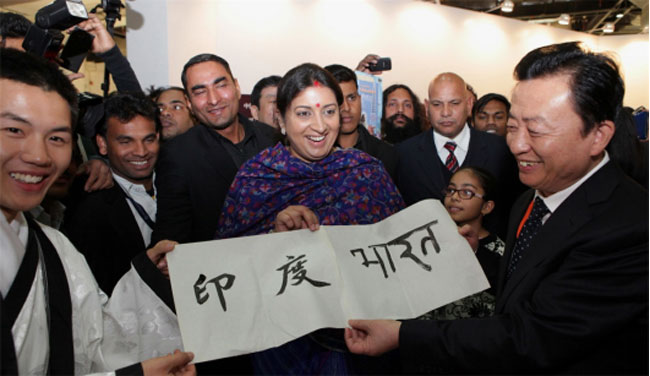 印度 भारत